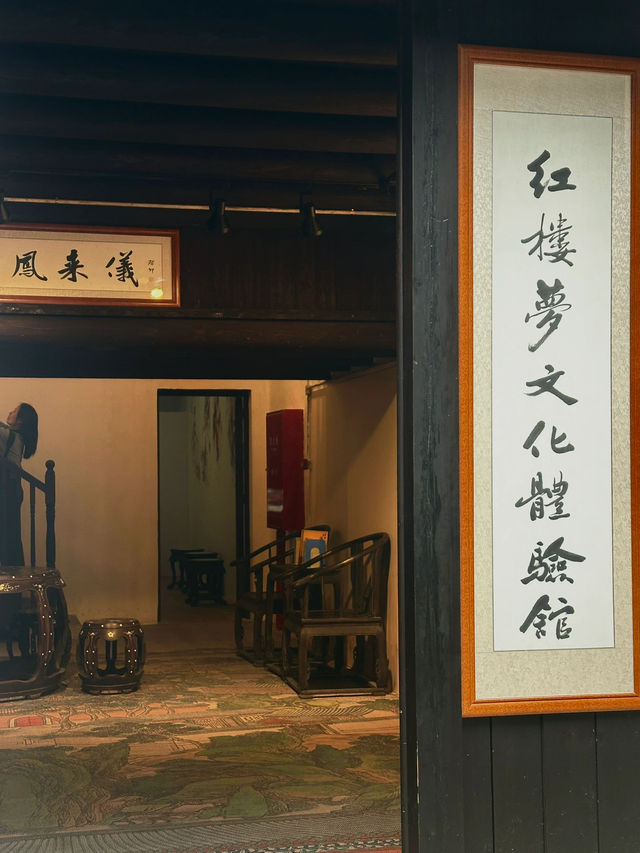 鳳来儀
红楼夢文化體驗館